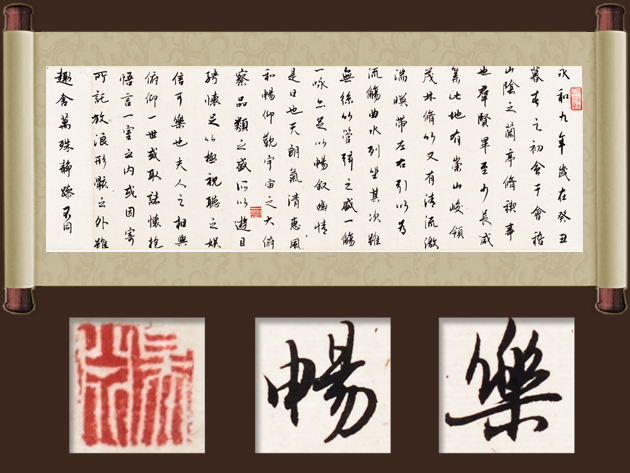 永和九年歲在癸丑
暮春之初會于會稽
山陰之蘭亭脩禊事
也羣賢畢至少長咸
集此地有崇山峻領
茂林脩竹又有清流激
湍暎帶左右引以為
流觴曲水列坐其次雖
無絲竹管絃之盛一觴
一詠亦足以暢叙幽情
是日也天朗氣清惠風
和暢仰觀宇宙之大俯
察品類之盛所以遊目
騁懷足以極視聽之娛
信可樂也夫人之相與
俯仰一世或取諸懷抱
悟言一室之內或因寄
所託放浪形骸之外雖
趣舍萬殊靜躁不同
暢
樂